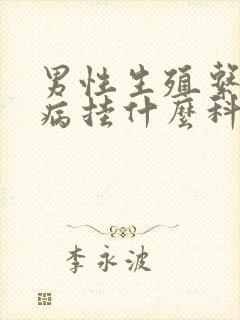 男性生殖繫
病挂什麼科
李永波